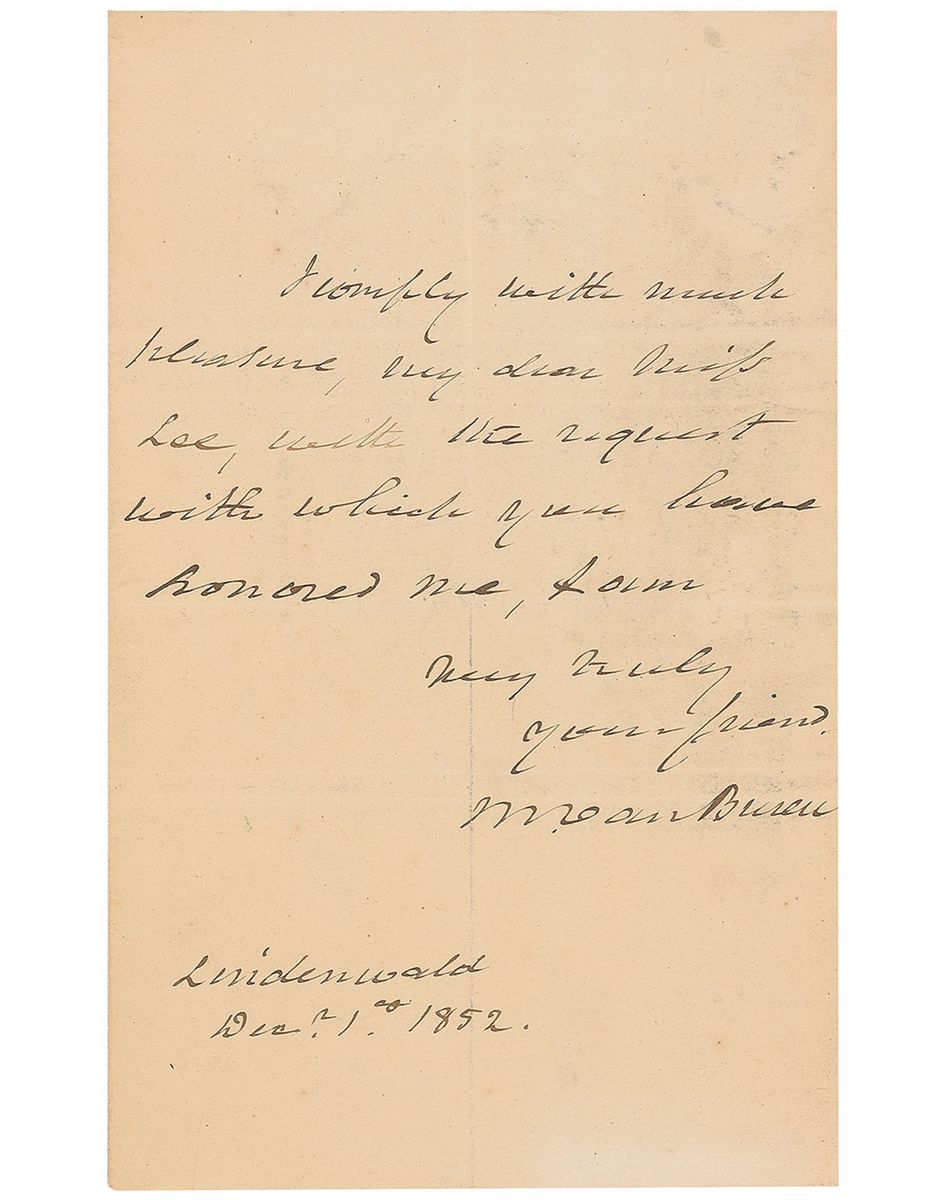 I comply with much
pleasure, my dear Miss
Lee, with the request
with which you have
honored me, & am
very truly
your friend.
M Van Buren
Lindenwald
Decr. 1st 1852.